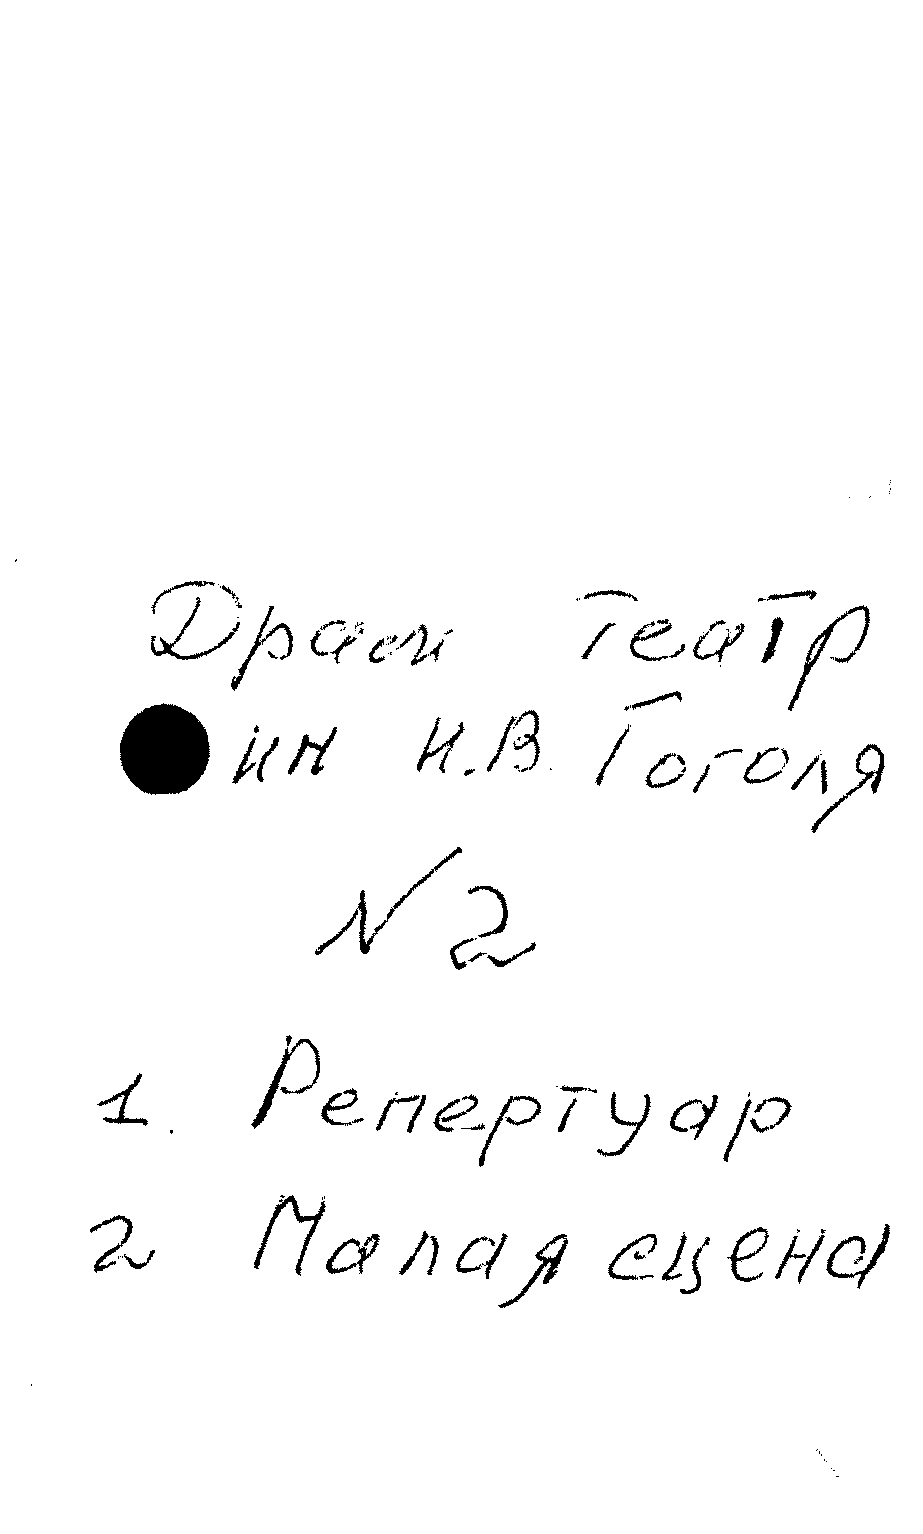 Драм театр
им Н.В. Гоголя
N 2
1. Репертуар
2 Малая сцена